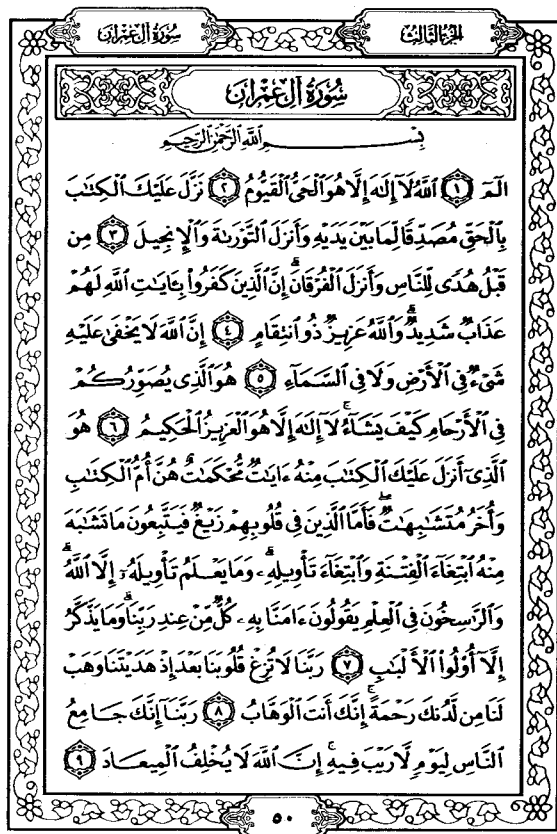 سُورَةُ آلِ عِمْرَان
الجزء الثالث
سُورَةُ آلِ عِمْرَان
بِسْمِ اللَّهِ الرَّحْمَٰنِ الرَّحِيمِ
الٓمٓ ۝١ ٱللَّهُ لَآ إِلَٰهَ إِلَّا هُوَ ٱلْحَىُّ ٱلْقَيُّومُ ۝٢ نَزَّلَ عَلَيْكَ ٱلْكِتَٰبَ
بِٱلْحَقِّ مُصَدِّقًا لِّمَا بَيْنَ يَدَيْهِ وَأَنزَلَ ٱلتَّوْرَىٰةَ وَٱلْإِنجِيلَ ۝٣ مِن
قَبْلُ هُدًى لِّلنَّاسِ وَأَنزَلَ ٱلْفُرْقَانَ ۗ إِنَّ ٱلَّذِينَ كَفَرُوا۟ بِـَٔايَٰتِ ٱللَّهِ لَهُمْ
عَذَابٌ شَدِيدٌ ۗ وَٱللَّهُ عَزِيزٌ ذُو ٱنتِقَامٍ ۝٤ إِنَّ ٱللَّهَ لَا يَخْفَىٰ عَلَيْهِ
شَىْءٌ فِى ٱلْأَرْضِ وَلَا فِى ٱلسَّمَآءِ ۝٥ هُوَ ٱلَّذِى يُصَوِّرُكُمْ
فِى ٱلْأَرْحَامِ كَيْفَ يَشَآءُ ۚ لَآ إِلَٰهَ إِلَّا هُوَ ٱلْعَزِيزُ ٱلْحَكِيمُ ۝٦ هُوَ
ٱلَّذِىٓ أَنزَلَ عَلَيْكَ ٱلْكِتَٰبَ مِنْهُ ءَايَٰتٌ مُّحْكَمَٰتٌ هُنَّ أُمُّ ٱلْكِتَٰبِ
وَأُخَرُ مُتَشَٰبِهَٰتٌ ۖ فَأَمَّا ٱلَّذِينَ فِى قُلُوبِهِمْ زَيْغٌ فَيَتَّبِعُونَ مَا تَشَٰبَهَ
مِنْهُ ٱبْتِغَآءَ ٱلْفِتْنَةِ وَٱبْتِغَآءَ تَأْوِيلِهِۦ ۗ وَمَا يَعْلَمُ تَأْوِيلَهُۥٓ إِلَّا ٱللَّهُ ۗ
وَٱلرَّٰسِخُونَ فِى ٱلْعِلْمِ يَقُولُونَ ءَامَنَّا بِهِۦ كُلٌّ مِّنْ عِندِ رَبِّنَا ۗ وَمَا يَذَّكَّرُ
إِلَّآ أُو۟لُوا۟ ٱلْأَلْبَٰبِ ۝٧ رَبَّنَا لَا تُزِغْ قُلُوبَنَا بَعْدَ إِذْ هَدَيْتَنَا وَهَبْ
لَنَا مِن لَّدُنكَ رَحْمَةً ۚ إِنَّكَ أَنتَ ٱلْوَهَّابُ ۝٨ رَبَّنَآ إِنَّكَ جَامِعُ
ٱلنَّاسِ لِيَوْمٍ لَّا رَيْبَ فِيهِ ۚ إِنَّ ٱللَّهَ لَا يُخْلِفُ ٱلْمِيعَادَ ۝٩
٥٠